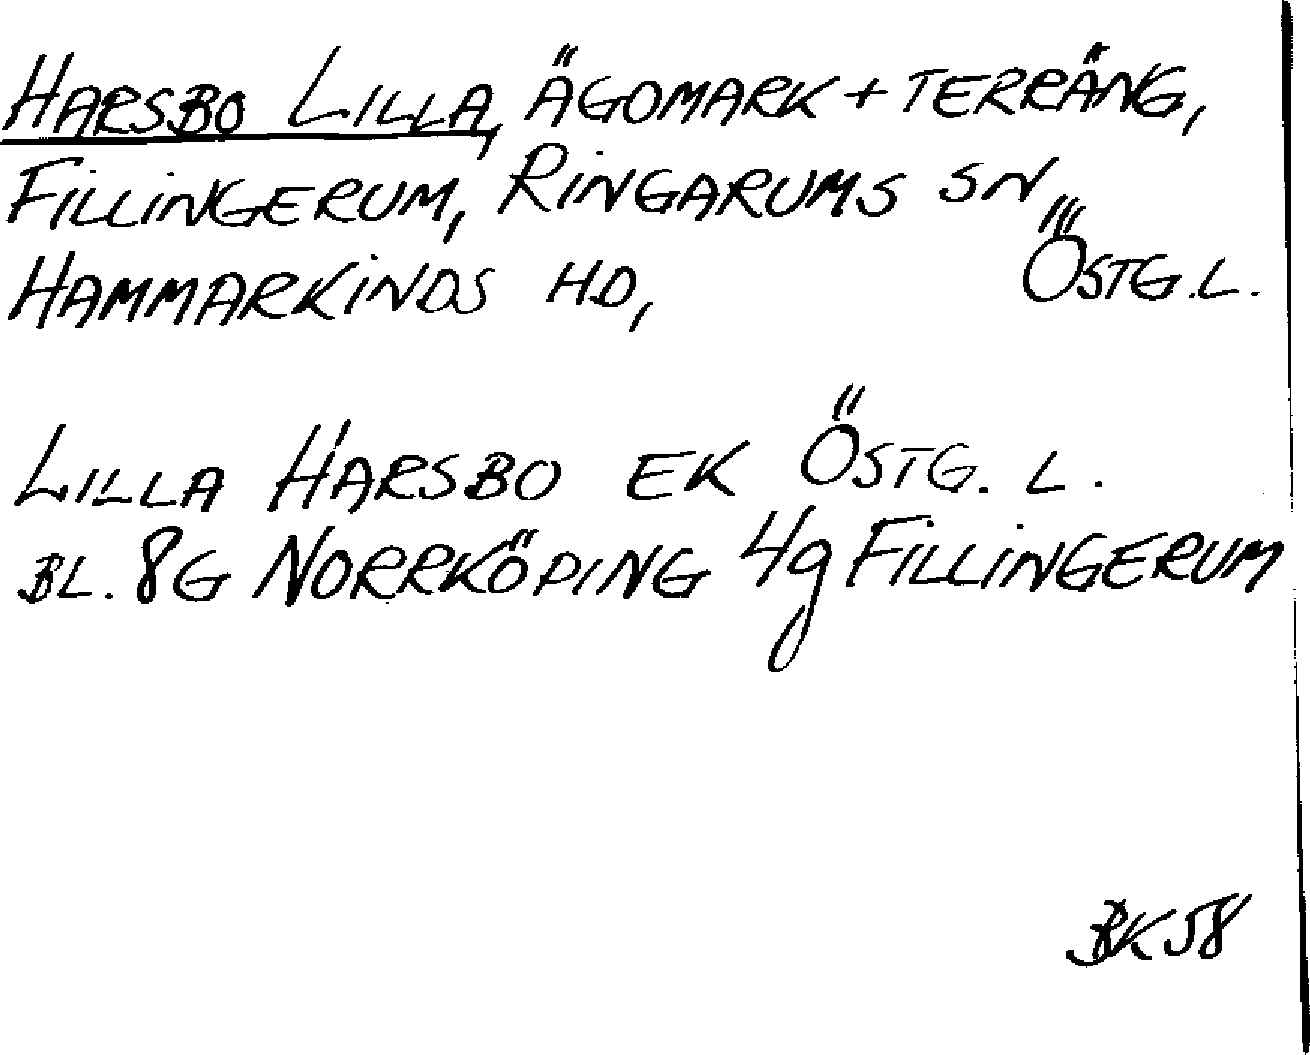 HARSBO LILLA, ÄGOMARK + TERRÄNG,
FILLINGERUM, RINGARUMS SN,
HAMMARKINDS HD, ÖSTG.L.
LILLA HARSBO EK ÖSTG. L.
BL. 8G NORRKÖPING 4g FILLINGERUM
BK58